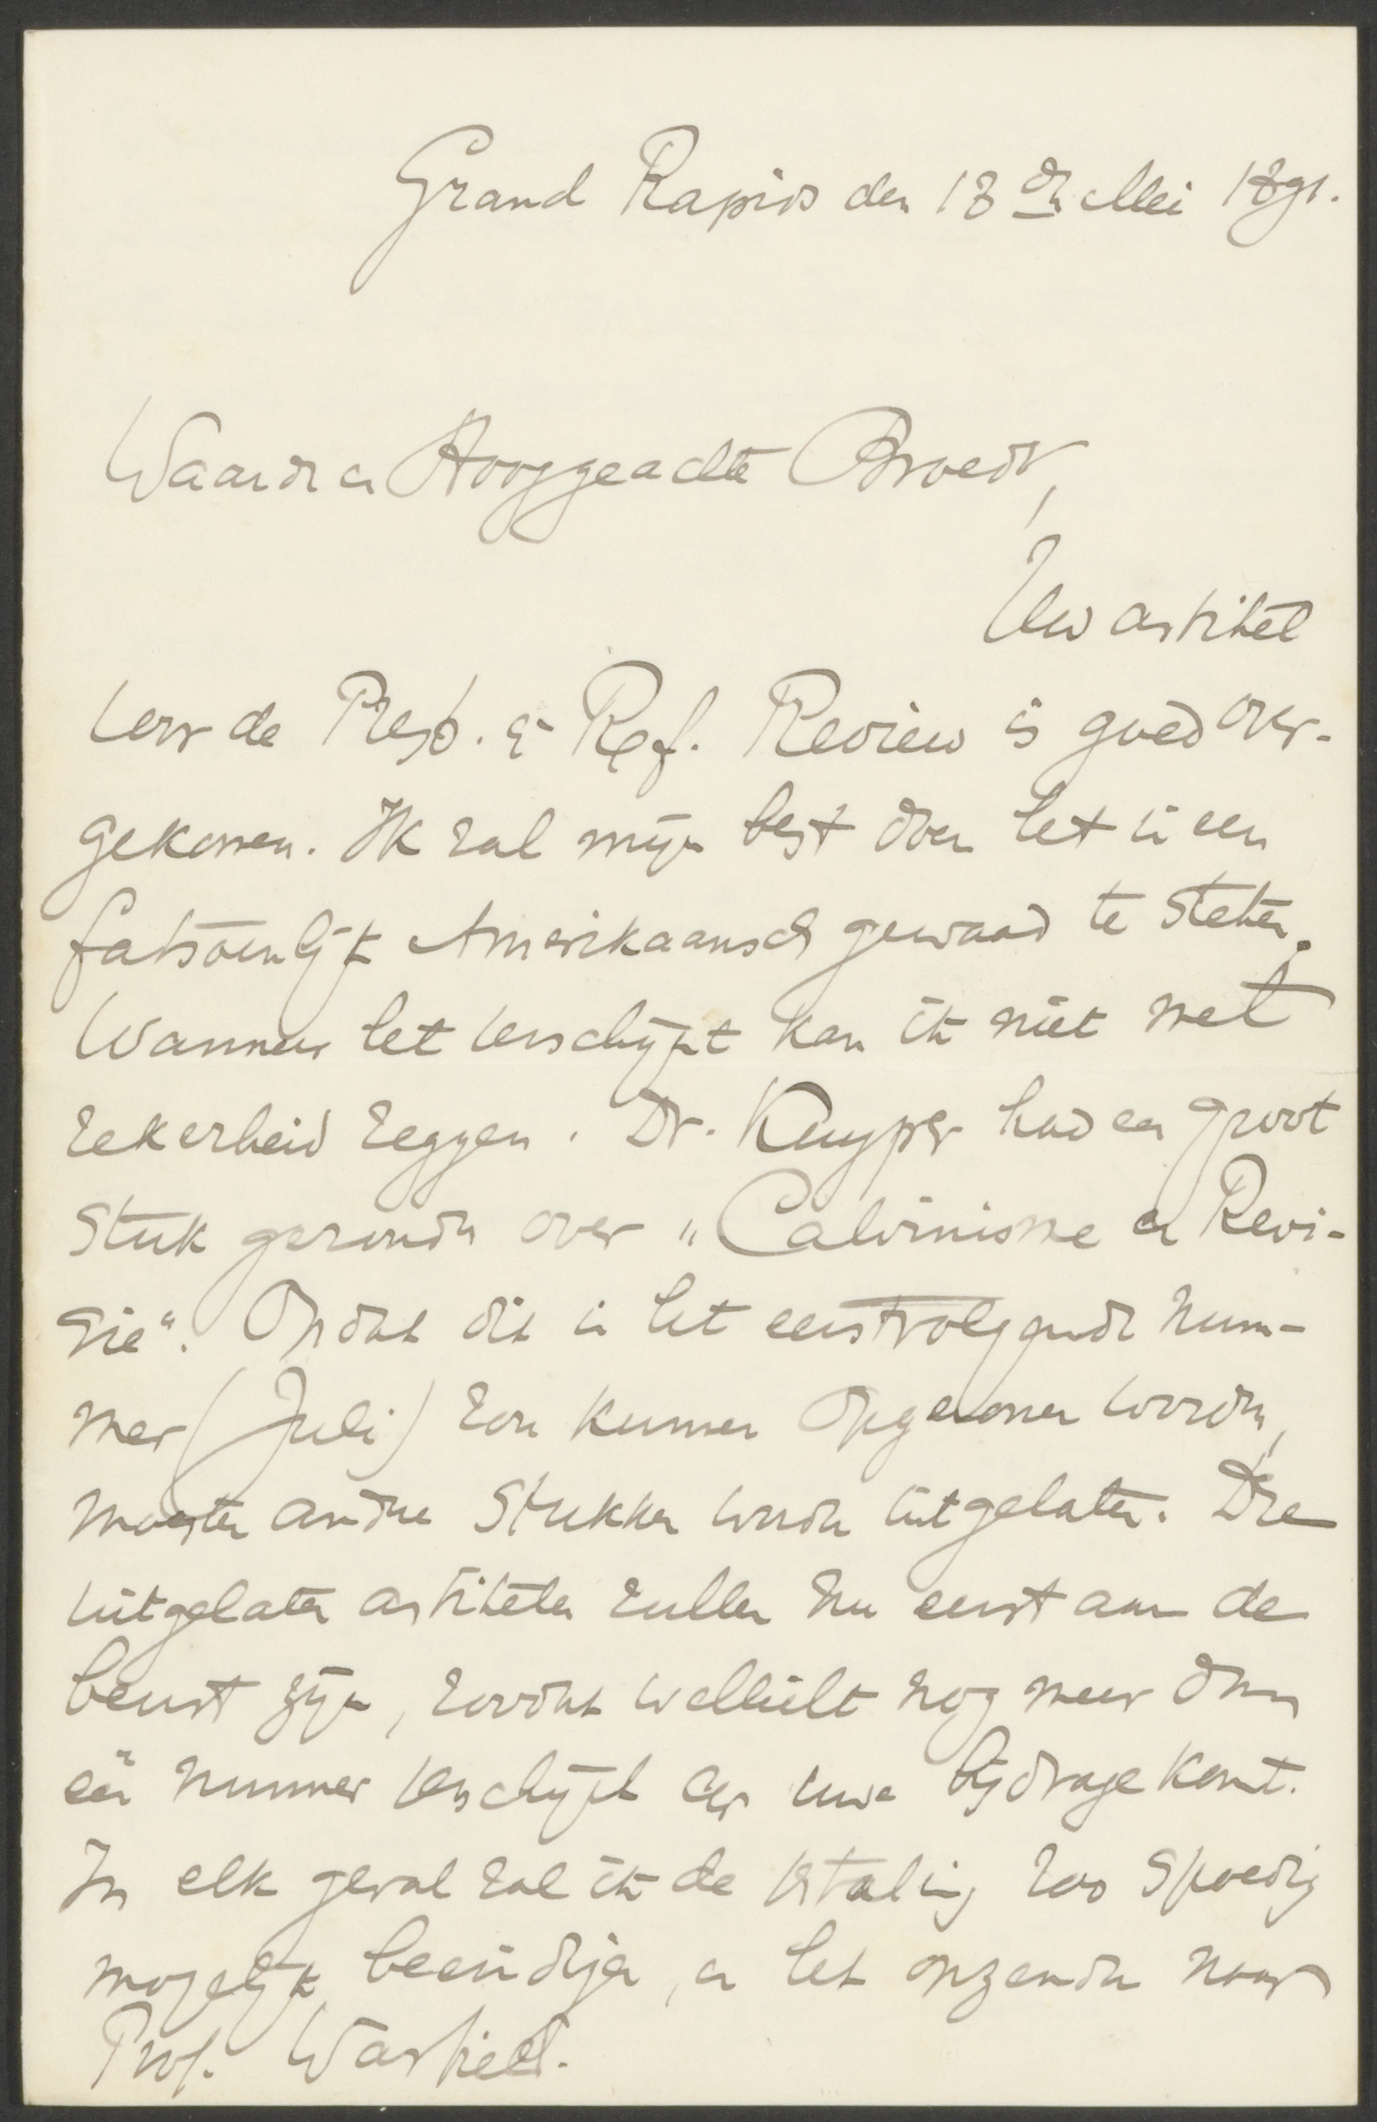 Grand Rapids den 18den Mei 1891.
Waarde en Hooggeachte Broeder,
Uw artikel
voor de Presb. & Ref. Review is goed over-
gekomen. Ik zal mijn best doen het in een
fatsoenlijk Amerikaansch gewaad te steken.
Wanneer het verschijnt kan ik niet met
zekerheid zeggen. Dr. Kuyper had een groot
stuk gezonden over „Calvinisme en Revi-
sie“. Opdat dit in het eerstvolgende num-
mer (Juli) zou kunnen opgenomen worden,
moesten andere stukken worden uitgelaten. Die
uitgelaten artikelen zullen nu eerst aan de
beurt zijn, zoodat wellicht nog meer dan
één nummer verschijnt eer uwe bijdrage komt.
In elk geval zal ik de vertaling zoo spoedig
mogelijk beëindigen, en het opzenden naar
Prof. Warfield.